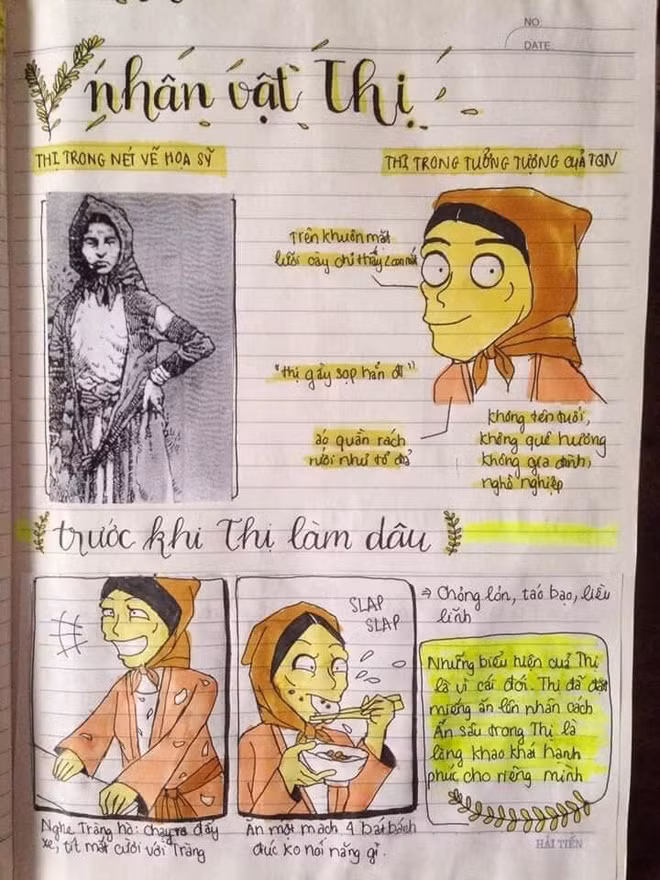 NO:
DATE:
nhân vật Thị
THỊ TRONG NÉT VẼ HỌA SỸ
THỊ TRONG TƯỞNG TƯỢNG CUẢ TQN
Trên khuôn mặt
lưỡi cày chỉ thấy 2 con mắt
"thị gầy sọp hẳn đi"
áo quần rách
rưới như tổ đỉa
không tên tuổi,
không quê hương
không gia đình,
nghề nghiệp
trước khi Thị làm dâu
SLAP
SLAP
⇒ Chỏng lỏn, táo bạo, liều
lĩnh
Những biểu hiện cuả Thị
là vì cái đói. Thị đã đặt
miếng ăn lên nhân cách
Ẩn sâu trong Thị là
lòng khao khát hạnh
phúc cho riêng mình
Nghe Tràng hò: chạy ra đẩy
xe, tít mắt cười với Tràng
Ăn một mạch 4 bát bánh
đúc ko nói năng gì.
HẢI TIẾN